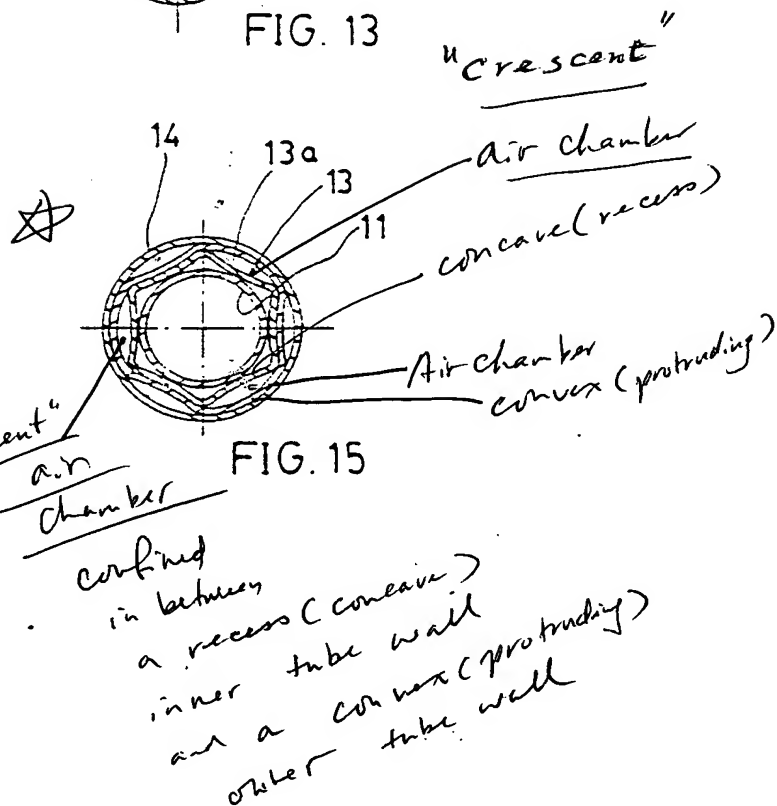 FIG. 13
"Crescent"
14
13a
13
11
air chamber
concave (recess)
Air chamber
convex (protruding)
ent"
air
chamber
FIG. 15
confined
in between
a recess (concave)
inner tube wall
and a convex (protruding)
outer tube wall